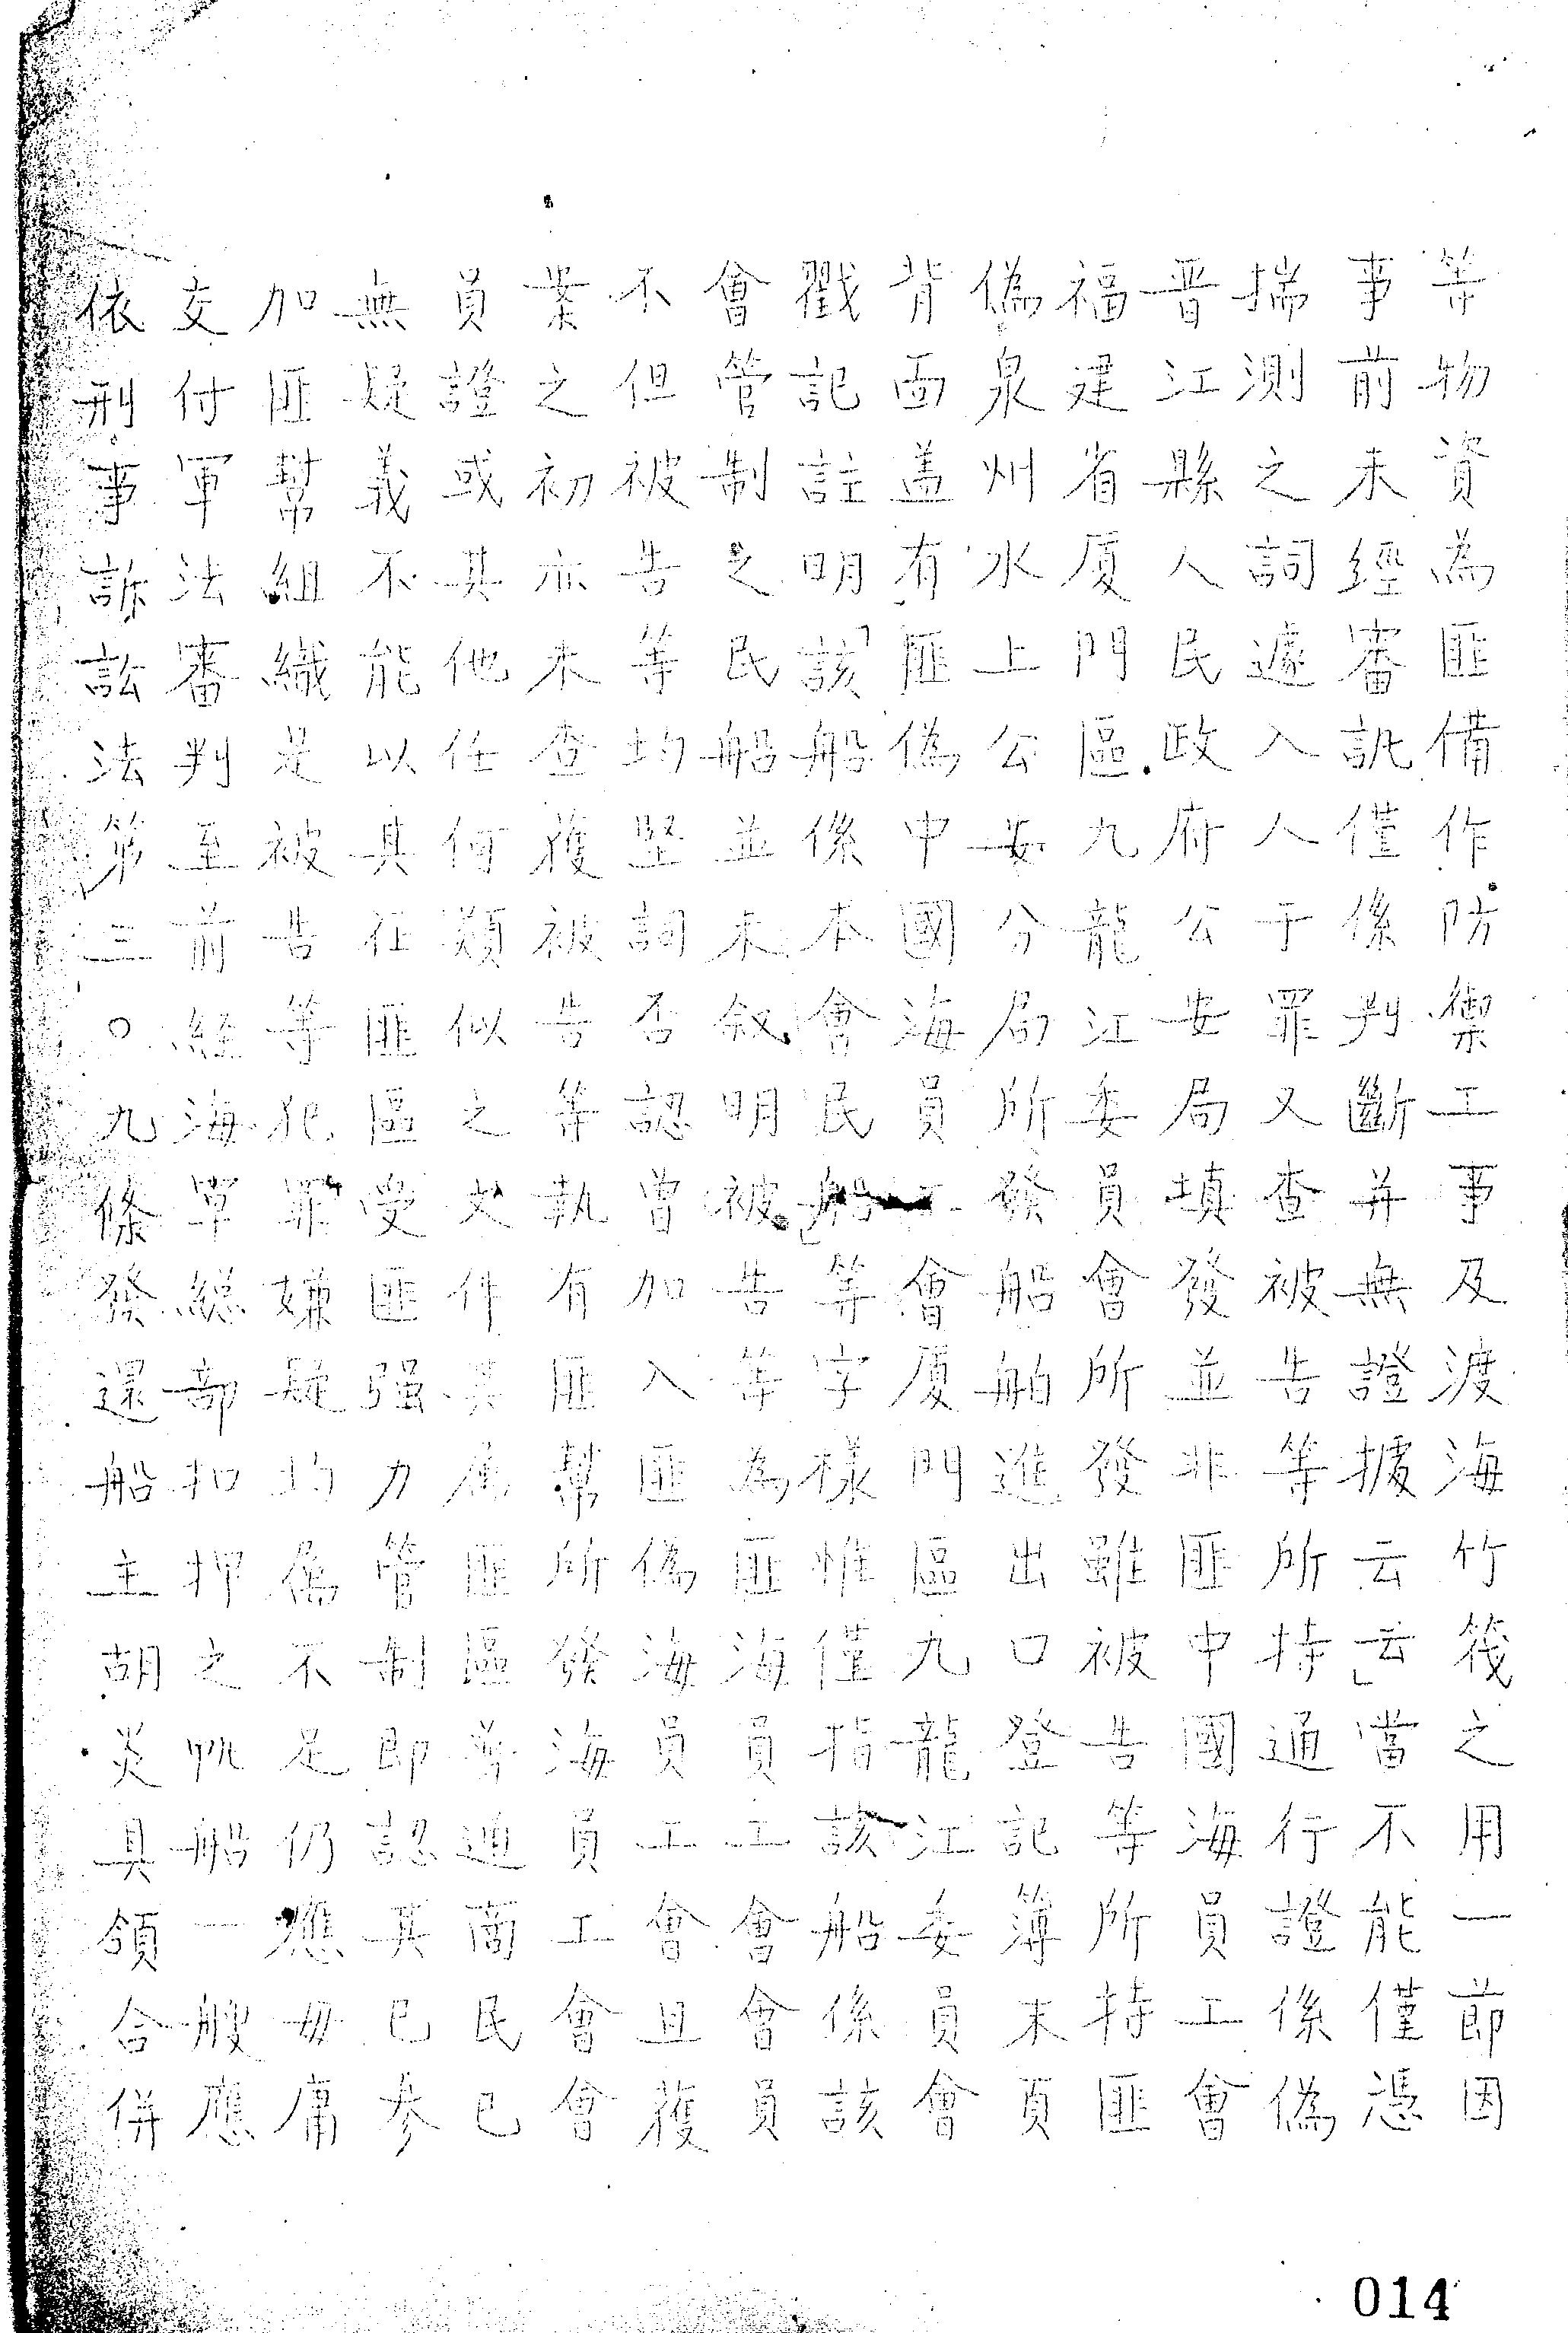 等物資為匪備作防禦工事及渡海竹筏之用一節因
事前未經審訊僅係判斷并無證據云云當不能僅憑
揣測之詞遽入人于罪又查被告等所持通行證係偽
晋江縣人民政府公安局填發並非匪中國海員工會
福建省厦門區九龍江委員會所發雖被告等所持匪
偽泉州水上公安分局所發船舶進出口登記簿末頁
背面盖有匪偽中國海員工會厦門區九龍江委員會
戳記註明「該船係本會民船」等字樣惟僅指該船係該
會管制之民船並未叙明被告等為匪海員工會會員
不但被告等均堅詞否認曾加入匪偽海員工會且獲
案之初亦未查獲被告等執有匪幫所發海員工會會
員證或其他任何類似之文件其屬匪區善廸商民已
無疑義不能以其在匪區受匪强力管制即認其已參
加匪幫組織是被告等犯罪嫌疑均属不足仍應毋庸
交付軍法審判至前經海軍總部扣押之帆船一艘應
依刑事訴訟法第三〇九條發還船主胡炎具領合併
014